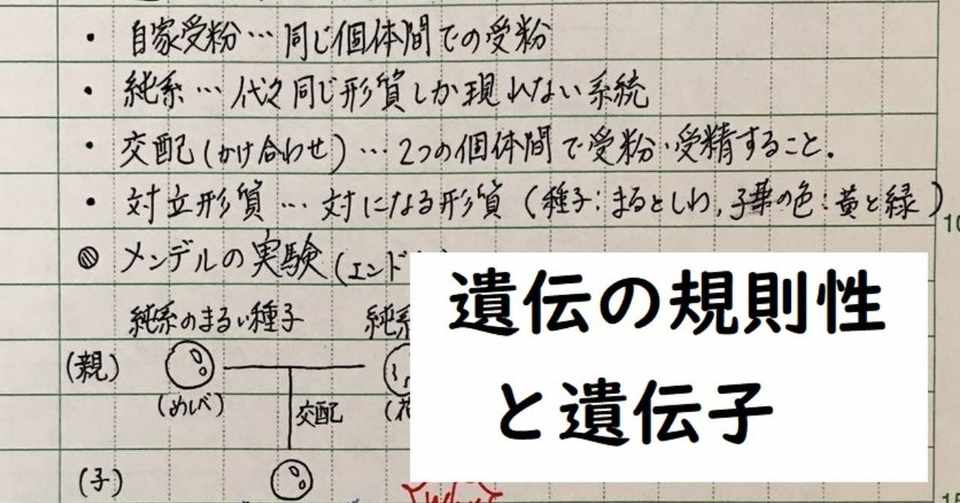 ・自家受粉…同じ個体間での受粉
・純系…代々同じ形質しか現れない系統
・交配(かけ合わせ)…2つの個体間で受粉・受精すること.
・対立形質…対になる形質(種子:まるとしわ,子葉の色:黄と緑)
10
◎メンデルの実験(エンド
遺伝の規則性
と遺伝子
純系のまるい種子 純系
(親)
(めしべ)
交配
(花
(子)
15